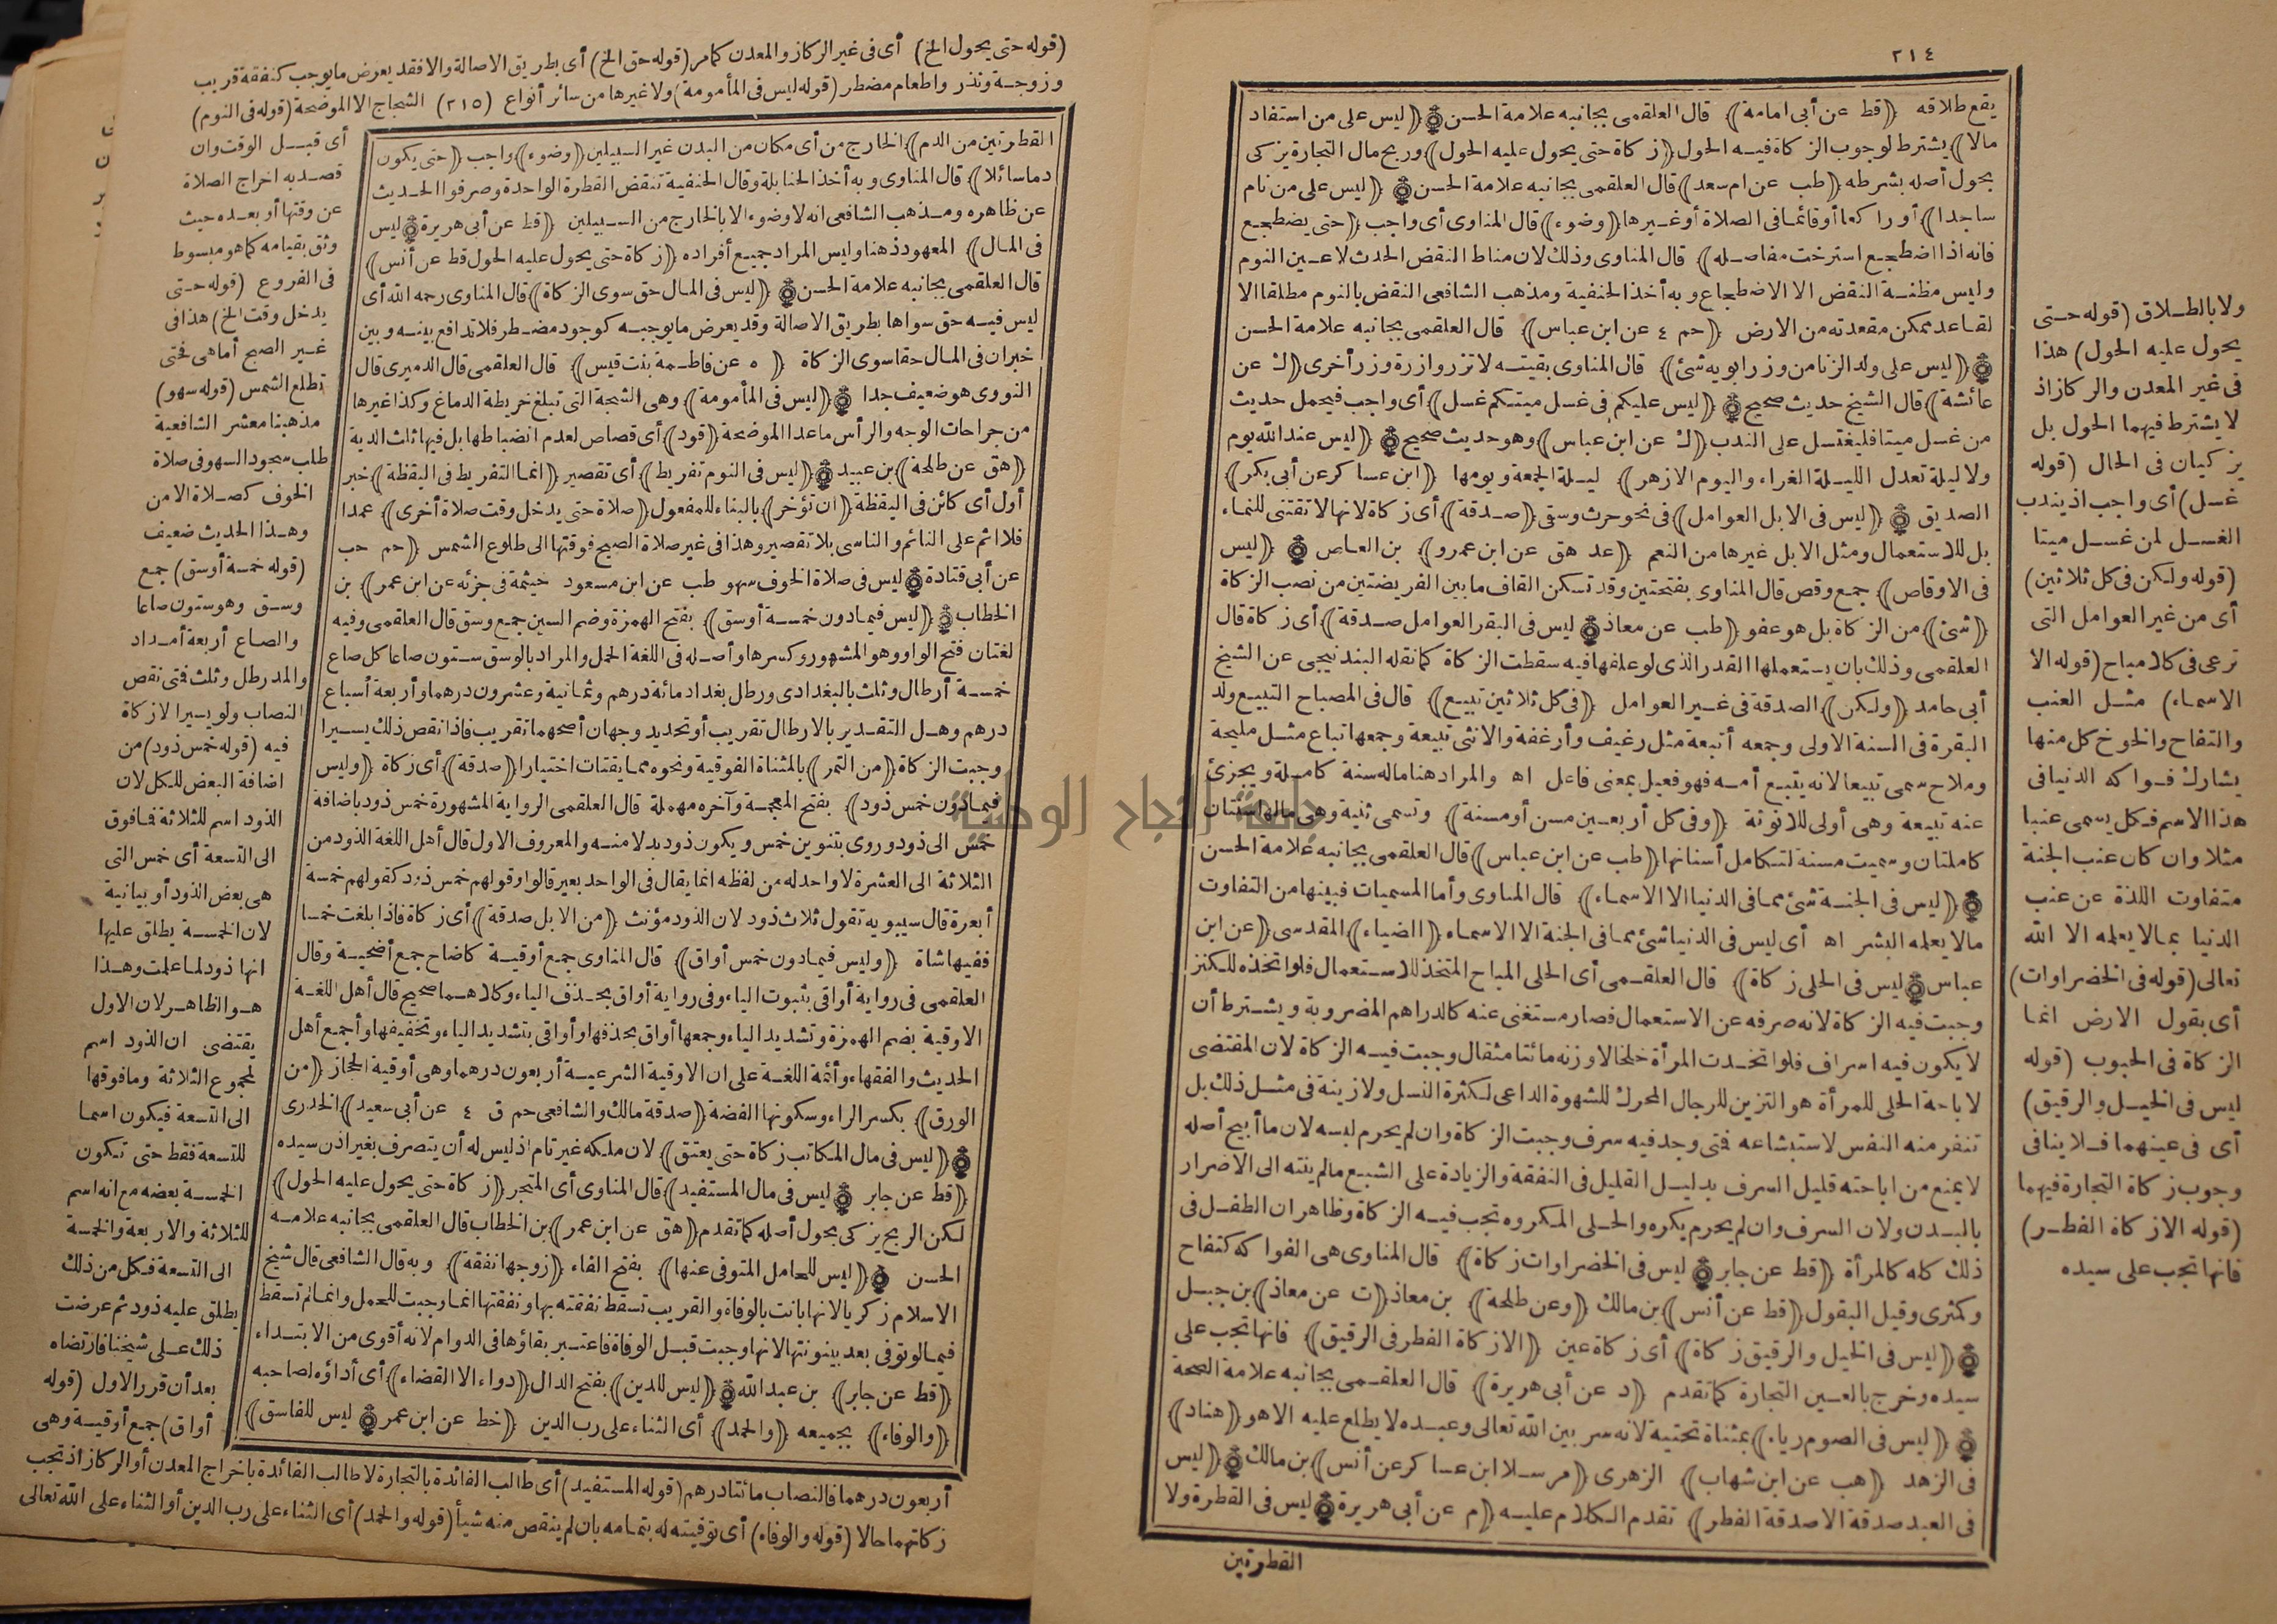 ٢١٤
يقع طلاقه (قط عن أبى امامة) قال العلقمى بجانبه علامة الحسن (ليس على من استفاد
مالا) يشترط لوجوب الزكاة فيه الحول (زكاة حتى يحول عليه الحول) وربح مال التجارة يزكى
بحول أصله بشرطه (طب عن ام سعد) قال العلقمى بجانبه علامة الحسن (ليس على من نام
ساجدا) أو راكعا أو قائما فى الصلاة أو غيرها (وضوء) قال المناوى أى واجب (حتى يضطجع
فانه اذا اضطجع استرخت مفاصله) قال المناوى وذلك لان مناط النقض الحدث لا عين النوم
وليس مظنة النقض الا الاضطجاع وبه أخذ الحنفية ومذهب الشافعى النقض بالنوم مطلقا الا
لقاعد ممكن مقعدته من الارض (حم ٤ عن ابن عباس) قال العلقمى بجانبه علامة الحسن
(ليس على ولد الزنا من وزر ابويه شئ) قال المناوى بقيته لا تزر وازرة وزر أخرى (ك عن
عائشة) قال الشيخ حديث صحيح (ليس عليكم فى غسل ميتكم غسل) أى واجب فيحمل حديث
من غسل ميتا فليغتسل على الندب (ك عن ابن عباس) وهو حديث صحيح (ليس عند الله يوم
ولا ليلة تعدل الليلة الغراء واليوم الازهر) ليلة الجمعة ويومها (ابن عساكر عن أبى بكر)
الصديق (ليس فى الابل العوامل) فى نحو حرث وسقى (صدقة) أى زكاة لانها لا تقتنى للنماء
بل للاستعمال ومثل الابل غيرها من النعم (عد هق عن ابن عمرو) بن العاص (ليس
فى الاوقاص) جمع وقص قال المناوى بفتحتين وقد تسكن القاف ما بين الفريضتين من نصب الزكاة
(شئ) من الزكاة بل هو عفو (طب عن معاذ ليس فى البقر العوامل صدقة) أى زكاة قال
العلقمى وذلك بان يستعملها القدر الذى لو علفها فيه سقطت الزكاة كما نقله البندنيجى عن الشيخ
أبى حامد (ولكن) الصدقة فى غير العوامل (فى كل ثلاثين تبيع) قال فى المصباح التبيع ولد
البقرة فى السنة الاولى وجمعه أتبعة مثل رغيف وأرغفة والانثى تبيعة وجمعها تباع مثل مليحة
وملاح سمى تبيعا لانه يتبع أمه فهو فعيل بمعنى فاعل اه والمراد هنا ماله سنة كاملة ويجزئ
عنه تبيعة وهى أولى للانوثة (وفى كل أربعين مسن أو مسنة) وتسمى ثنية وهى مالها سنتان
كاملتان وسميت مسنة لتكامل أسنانها (طب عن ابن عباس) قال العلقمى بجانبه علامة الحسن
(ليس فى الجنة شئ مما فى الدنيا الا الاسماء) قال المناوى وأما المسميات فبينها من التفاوت
مالا يعلمه البشر اه أى ليس فى الدنيا شئ مما فى الجنة الا الاسماء (الضياء) المقدسى (عن ابن
عباس ليس فى الحلى زكاة) قال العلقمى أى الحلى المباح المتخذ للاستعمال فلو اتخذه للكنز
وجبت فيه الزكاة لانه صرفه عن الاستعمال فصار مستغنى عنه كالدراهم المضروبة ويشترط أن
لا يكون فيه اسراف فلو اتخذت المرأة خلخالا وزنه مائتا مثقال وجبت فيه الزكاة لان المقتضى
لاباحة الحلى للمرأة هو التزين للرجال المحرك للشهوة الداعى لكثرة النسل ولا زينة فى مثل ذلك بل
تنفر منه النفس لاستبشاعه فتى وجد فيه سرف وجبت الزكاة وان لم يحرم لبسه لان ما أبيح أصله
لا يمنع من اباحته قليل السرف بدليل القليل فى النفقة والزيادة على الشبع مالم ينته الى الاضرار
بالبدن ولان السرف وان لم يحرم يكره والحلى المكروه تجب فيه الزكاة وظاهر ان الطفل فى
ذلك كله كالمرأة (قط عن جابر ليس فى الخضراوات زكاة) قال المناوى هى الفواكه كتفاح
وكمثرى وقيل البقول (قط عن أنس) بن مالك (وعن طلحة) بن معاذ (ت عن معاذ) بن جبل
(ليس فى الخيل والرقيق زكاة) أى زكاة عين (الا زكاة الفطر فى الرقيق) فانها تجب على
سيده وخرج بالعين التجارة كما تقدم (د عن أبى هريرة) قال العلقمى بجانبه علامة الصحة
(ليس فى الصوم رياء) بمثناة تحتية لانه سر بين الله تعالى وعبده لا يطلع عليه الا هو (هناد)
فى الزهد (هب عن ابن شهاب) الزهرى (مرسلا ابن عساكر عن أنس) بن مالك (ليس
فى العبد صدقة الا صدقة الفطر) تقدم الكلام عليه (م عن أبى هريرة ليس فى القطرة ولا
القطرتين
ولا بالطلاق (قوله حتى
يحول عليه الحول) هذا
فى غير المعدن والركاز اذ
لا يشترط فيهما الحول بل
يزكيان فى الحال (قوله
غسل) أى واجب اذ يندب
الغسل لمن غسل ميتا
(قوله ولكن فى كل ثلاثين)
أى من غير العوامل التى
ترعى فى كلا مباح (قوله الا
الاسماء) مثل العنب
والتفاح والخوخ كل منها
يشارك فواكه الدنيا فى
هذا الاسم فكل يسمى عنبا
مثلا وان كان عنب الجنة
متفاوت اللذة عن عنب
الدنيا بما لا يعلمه الا الله
تعالى (قوله فى الخضراوات)
أى بقول الارض انما
الزكاة فى الحبوب (قوله
ليس فى الخيل والرقيق)
أى فى عينهما فلا ينافى
وجوب زكاة التجارة فيهما
(قوله الا زكاة الفطر)
فانها تجب على سيده
(قوله حتى يحول الخ) أى فى غير الركاز والمعدن كما مر (قوله حق الخ) أى بطريق الاصالة والا فقد يعرض ما يوجب كنفقة قريب
وزوجة ونذر واطعام مضطر (قوله ليس فى المأمومة) ولا غيرها من سائر أنواع (٢١٥) الشجاج الا الموضحة (قوله فى النوم)
القطرتين من الدم) الخارج من أى مكان من البدن غير السبيلين (وضوء) واجب (حتى يكون
دما سائلا) قال المناوى وبه أخذ الحنابلة وقال الحنفية تنقض القطرة الواحدة وصرفوا الحديث
عن ظاهره ومذهب الشافعى انه لا وضوء الا بالخارج من السبيلين (قط عن أبى هريرة ليس
فى المال) المعهود ذهنا وليس المراد جميع أفراده (زكاة حتى يحول عليه الحول قط عن أنس)
قال العلقمى بجانبه علامة الحسن (ليس فى المال حق سوى الزكاة) قال المناوى رحمه الله أى
ليس فيه حق سواها بطريق الاصالة وقد يعرض ما يوجبه كوجود مضطر فلا تدافع بينه وبين
خبر ان فى المال حقا سوى الزكاة (ه عن فاطمة بنت قيس) قال العلقمى قال الدميرى قال
النووى هو ضعيف جدا (ليس فى المأمومة) وهى الشجة التى تبلغ خريطة الدماغ وكذا غيرها
من جراحات الوجه والرأس ما عدا الموضحة (قود) أى قصاص لعدم انضباطها بل فيها ثلث الدية
(هق عن طلحة) بن عبيد (ليس فى النوم تفريط) أى تقصير (انما التفريط فى اليقظة) خبر
أول أى كائن فى اليقظة (ان تؤخر) بالبناء للمفعول (صلاة حتى يدخل وقت صلاة أخرى) عمدا
فلا اثم على النائم والناسى بلا تقصير وهذا فى غير صلاة الصبح فوقتها الى طلوع الشمس (حم حب
عن أبى قتادة ليس فى صلاة الخوف سهو طب عن ابن مسعود خيثمة فى جزئه عن ابن عمر) بن
الخطاب (ليس فيما دون خمسة أوسق) بفتح الهمزة وضم السين جمع وسق قال العلقمى وفيه
لغتان فتح الواو وهو المشهور وكسرها وأصله فى اللغة الحمل والمراد بالوسق ستون صاعا كل صاع
خمسة أرطال وثلث بالبغدادى ورطل بغداد مائة درهم وثمانية وعشرون درهما وأربعة أسباع
درهم وهل التقدير بالارطال تقريب أو تحديد وجهان أصحهما تقريب فاذا نقص ذلك يسيرا
وجبت الزكاة (من التمر) بالمثناة الفوقية ونحوه مما يقتات اختيارا (صدقة) أى زكاة (وليس
فيما دون خمس ذود) بفتح المعجمة وآخره مهملة قال العلقمى الرواية المشهورة خمس ذود باضافة
خمس الى ذود وروى بتنوين خمس ويكون ذود بدلا منه والمعروف الاول قال أهل اللغة الذود من
الثلاثة الى العشرة لا واحد له من لفظه انما يقال فى الواحد بعير قالوا وقولهم خمس ذود كقولهم خمسة
أبعرة قال سيبويه تقول ثلاث ذود لان الذود مؤنث (من الابل صدقة) أى زكاة فاذا بلغت خمسا
ففيها شاة (وليس فيما دون خمس أواق) قال المناوى جمع أوقية كاضاح جمع أضحية وقال
العلقمى فى رواية أواقى بثبوت الياء وفى رواية أواق بحذف الياء وكلاهما صحيح قال أهل اللغة
الاوقية بضم الهمزة وتشديد الياء وجمعها أواق بحذفها وأواقى بتشديد الياء وتخفيفها وأجمع أهل
الحديث والفقهاء وأئمة اللغة على ان الاوقية الشرعية أربعون درهما وهى أوقية الحجاز (من
الورق) بكسر الراء وسكونها الفضة (صدقة مالك والشافعى حم ق ٤ عن أبى سعيد) الخدرى
(ليس فى مال المكاتب زكاة حتى يعتق) لان ملكه غير تام اذ ليس له أن يتصرف بغير اذن سيده
(قط عن جابر ليس فى مال المستفيد) قال المناوى أى المتجر (زكاة حتى يحول عليه الحول)
لكن الربح يزكى بحول أصله كما تقدم (هق عن ابن عمر) بن الخطاب قال العلقمى بجانبه علامة
الحسن (ليس للحامل المتوفى عنها) بفتح الفاء (زوجها نفقة) وبه قال الشافعى قال شيخ
الاسلام زكريا لانها بانت بالوفاة والقريب تسقط نفقته بها ونفقتها انما وجبت للحمل وانما لم تسقط
فيما لو توفى بعد بينونتها لانها وجبت قبل الوفاة فاعتبر بقاؤها فى الدوام لانه أقوى من الابتداء
(قط عن جابر) بن عبد الله (ليس للدين) بفتح الدال (دواء الا القضاء) أى أداؤه لصاحبه
(والوفاء) بجميعه (والحمد) أى الثناء على رب الدين (خط عن ابن عمر ليس للفاسق)
أى قبل الوقت وان
قصد به اخراج الصلاة
عن وقتها أو بعده حيث
وثق بقيامه كما هو مبسوط
فى الفروع (قوله حتى
يدخل وقت الخ) هذا فى
غير الصبح أما هى فحتى
تطلع الشمس (قوله سهو)
مذهبنا معشر الشافعية
طلب سجود السهو فى صلاة
الخوف كصلاة الامن
وهذا الحديث ضعيف
(قوله خمسة أوسق) جمع
وسق وهو ستون صاعا
والصاع أربعة أمداد
والمد رطل وثلث فتى نقص
النصاب ولو يسيرا لا زكاة
فيه (قوله خمس ذود) من
اضافة البعض للكل لان
الذود اسم للثلاثة فما فوق
الى التسعة أى خمس التى
هى بعض الذود أو بيانية
لان الخمسة يطلق عليها
انها ذود لما علمت وهذا
هو الظاهر لان الاول
يقتضى ان الذود اسم
لمجموع الثلاثة وما فوقها
الى التسعة فيكون اسما
للتسعة فقط حتى تكون
الخمسة بعضه مع انه اسم
للثلاثة والاربعة والخمسة
الى التسعة فكل من ذلك
يطلق عليه ذود ثم عرضت
ذلك على شيخنا فارتضاه
بعد أن قرر الاول (قوله
أواق) جمع أوقية وهى
أربعون درهما فالنصاب مائتا درهم (قوله المستفيد) أى طالب الفائدة بالتجارة لا طالب الفائدة باخراج المعدن أو الركاز اذ تجب
زكاتهما حالا (قوله والوفاء) أى توفيته له بتمامه بان لم ينقص منه شيأ (قوله والحمد) أى الثناء على رب الدين أو الثناء على الله تعالى
جامعة النجاح الوطنية